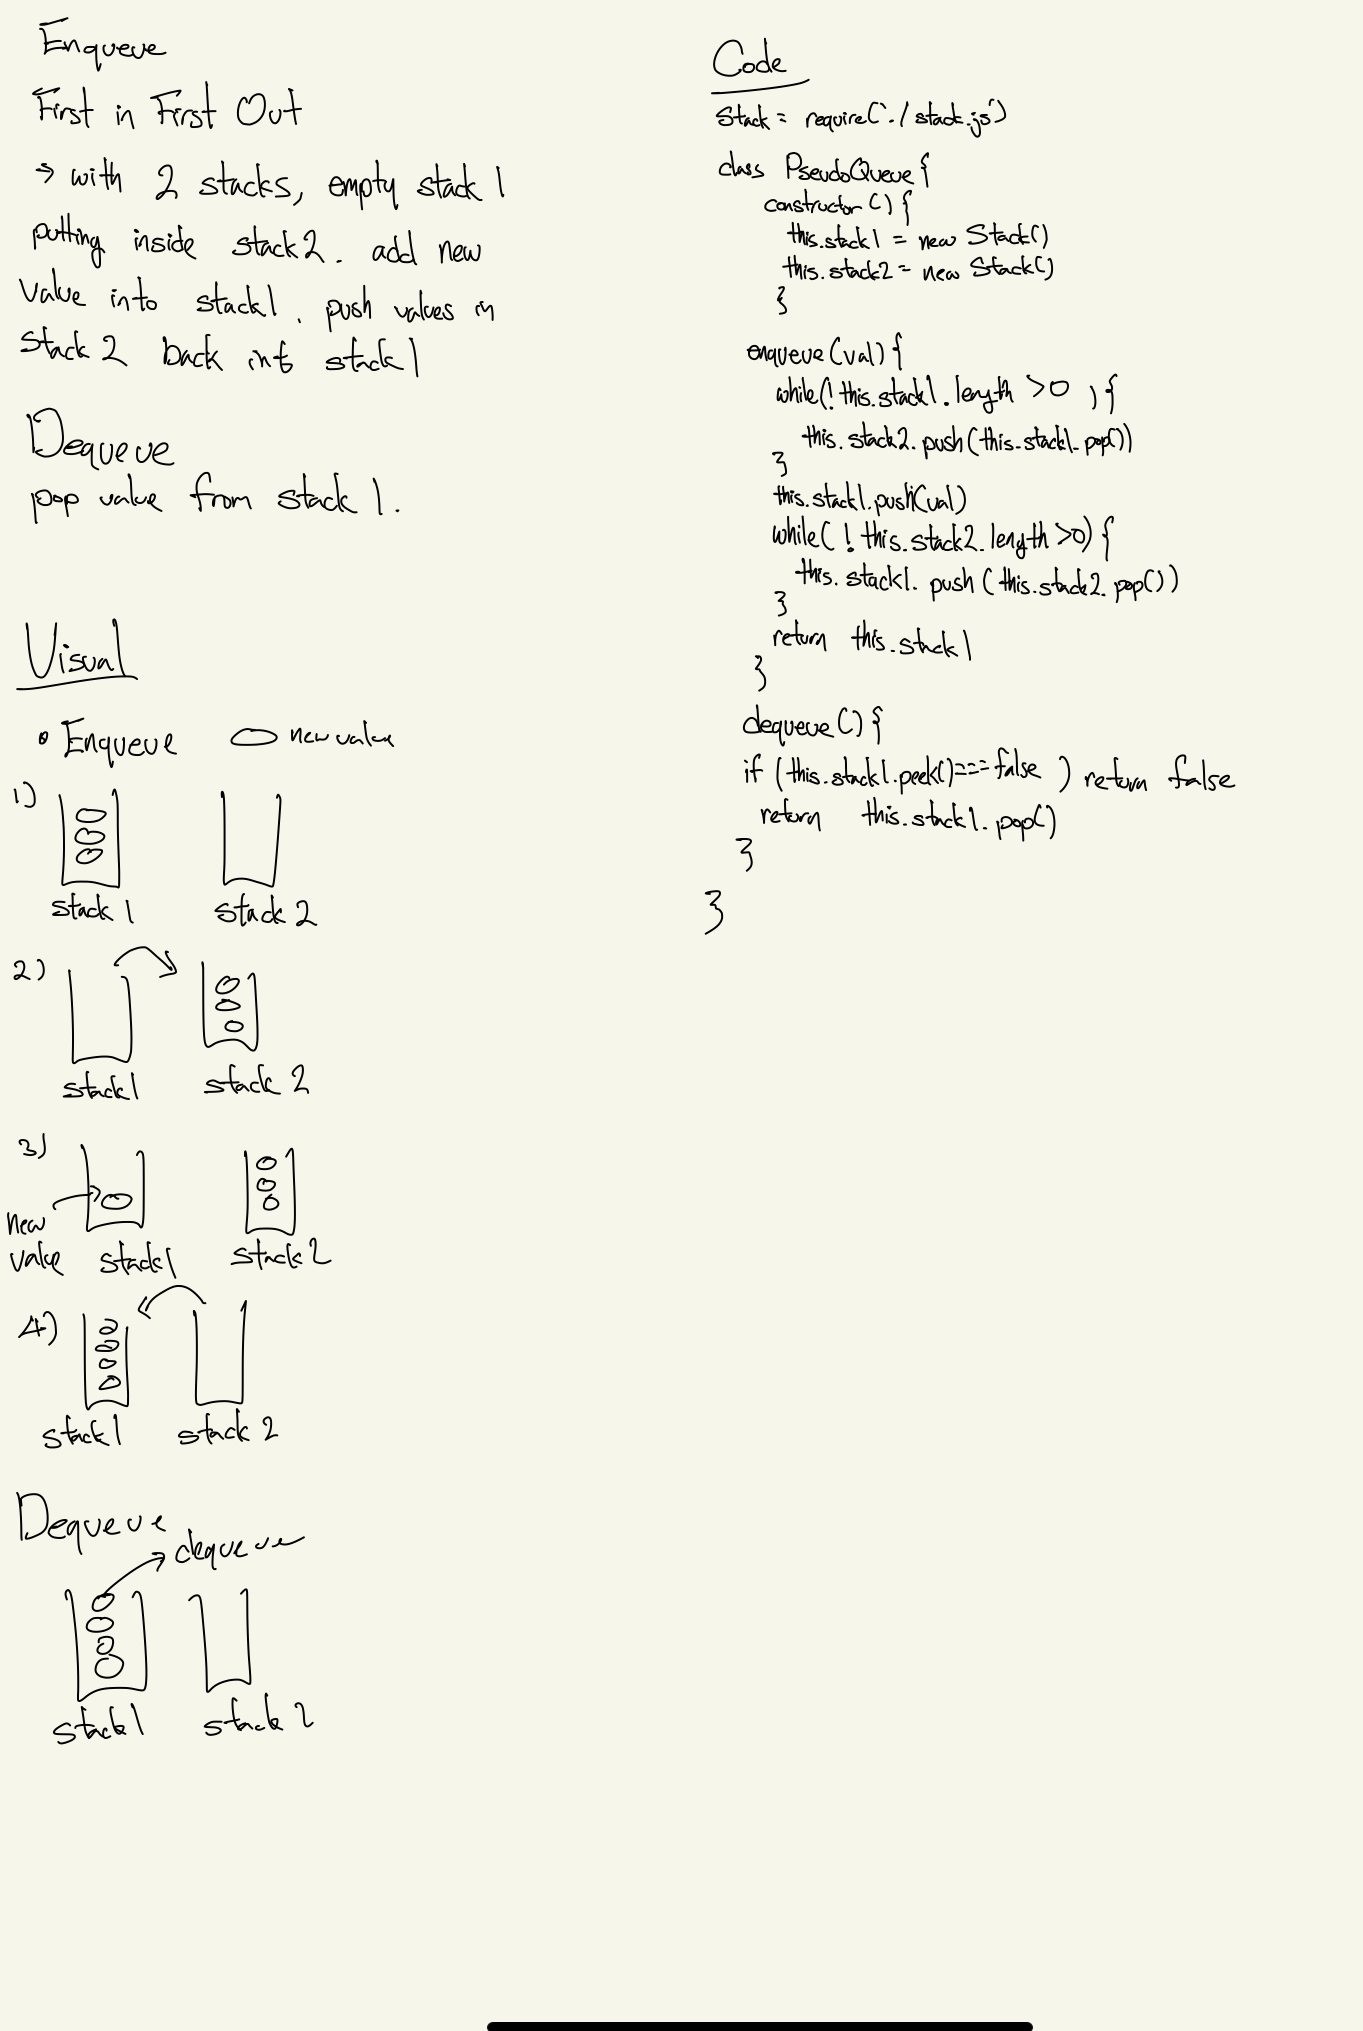 Enqueue
First in First Out
→ with 2 stacks, empty stack 1
putting inside stack2. add new
value into stack1. push values in
stack 2 back into stack 1
Dequeue
pop value from stack 1.
Visual
• Enqueue new value
1)
stack 1 stack 2
2)
stack1 stack 2
3)
new
value stack1 stack 2
4)
stack1 stack 2
Dequeue
dequeue
stack1 stack 2
Code
Stack = require('./stack.js')
class PseudoQueue {
constructor() {
this.stack1 = new Stack()
this.stack2 = new Stack()
}
enqueue(val) {
while(!this.stack1.length >0 ) {
this.stack2.push(this.stack1.pop())
}
this.stack1.push(val)
while( ! this.stack2.length >0) {
this.stack1.push(this.stack2.pop())
}
return this.stack1
}
dequeue() {
if (this.stack1.peek()===false ) return false
return this.stack1.pop()
}
}